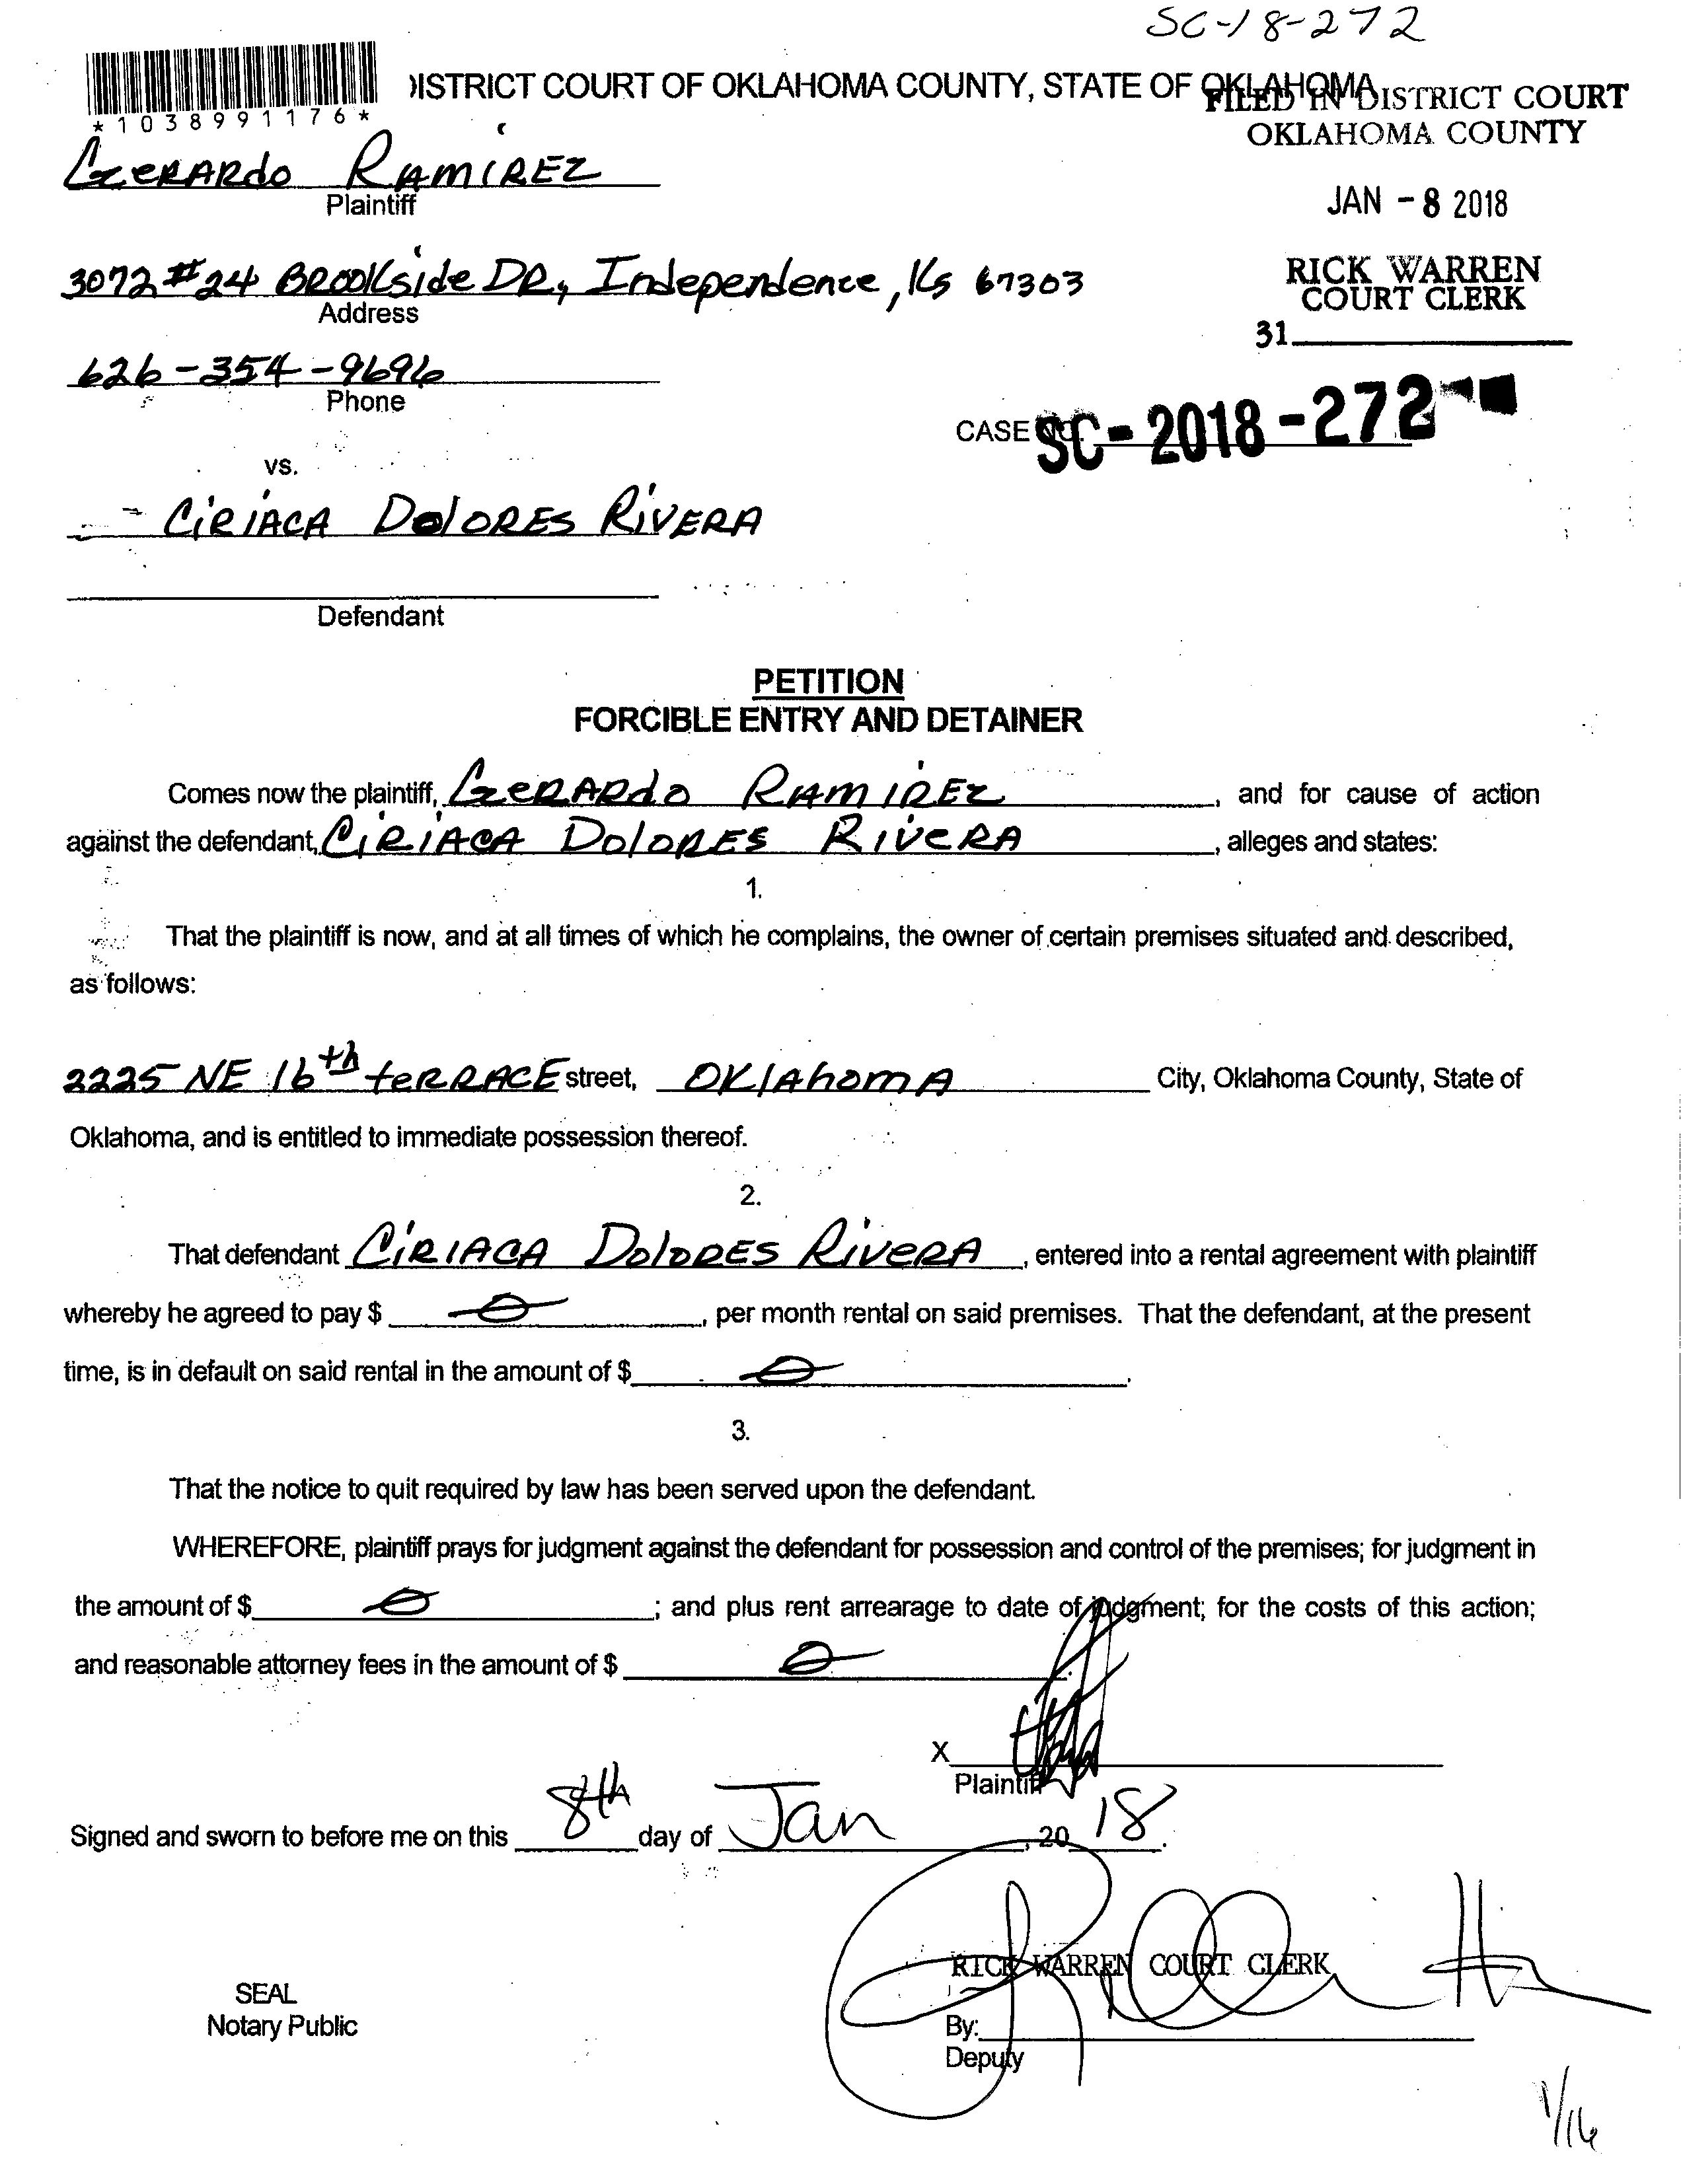 SC-18-272
*1038991176*
DISTRICT COURT OF OKLAHOMA COUNTY, STATE OF OKLAHOMA
FILED IN DISTRICT COURT
OKLAHOMA COUNTY
GERARdo RAMIREZ
Plaintiff
JAN - 8 2018
3072 #24 BROOKside DR, Independence, Ks 67303
Address
RICK WARREN
COURT CLERK
31
626-354-9696
Phone
CASE NO. SC-2018-272
vs.
CiRIACA DolORES RiVERA
Defendant
PETITION
FORCIBLE ENTRY AND DETAINER
Comes now the plaintiff, GERARdo RAMIREZ, and for cause of action
against the defendant, CiRIACA DolORES RIVERA, alleges and states:
1.
That the plaintiff is now, and at all times of which he complains, the owner of certain premises situated and described,
as follows:
2225 NE 16th teRRACE street, OKlAhomA City, Oklahoma County, State of
Oklahoma, and is entitled to immediate possession thereof.
2.
That defendant CiRIACA DolORES RiVERA, entered into a rental agreement with plaintiff
whereby he agreed to pay $ 0, per month rental on said premises. That the defendant, at the present
time, is in default on said rental in the amount of $ 0.
3.
That the notice to quit required by law has been served upon the defendant.
WHEREFORE, plaintiff prays for judgment against the defendant for possession and control of the premises; for judgment in
the amount of $ 0; and plus rent arrearage to date of judgment; for the costs of this action;
and reasonable attorney fees in the amount of $ 0.
X
Plaintiff
Signed and sworn to before me on this 8th day of Jan, 2018.
RICK WARREN COURT CLERK
SEAL
Notary Public
By:
Deputy
1/16